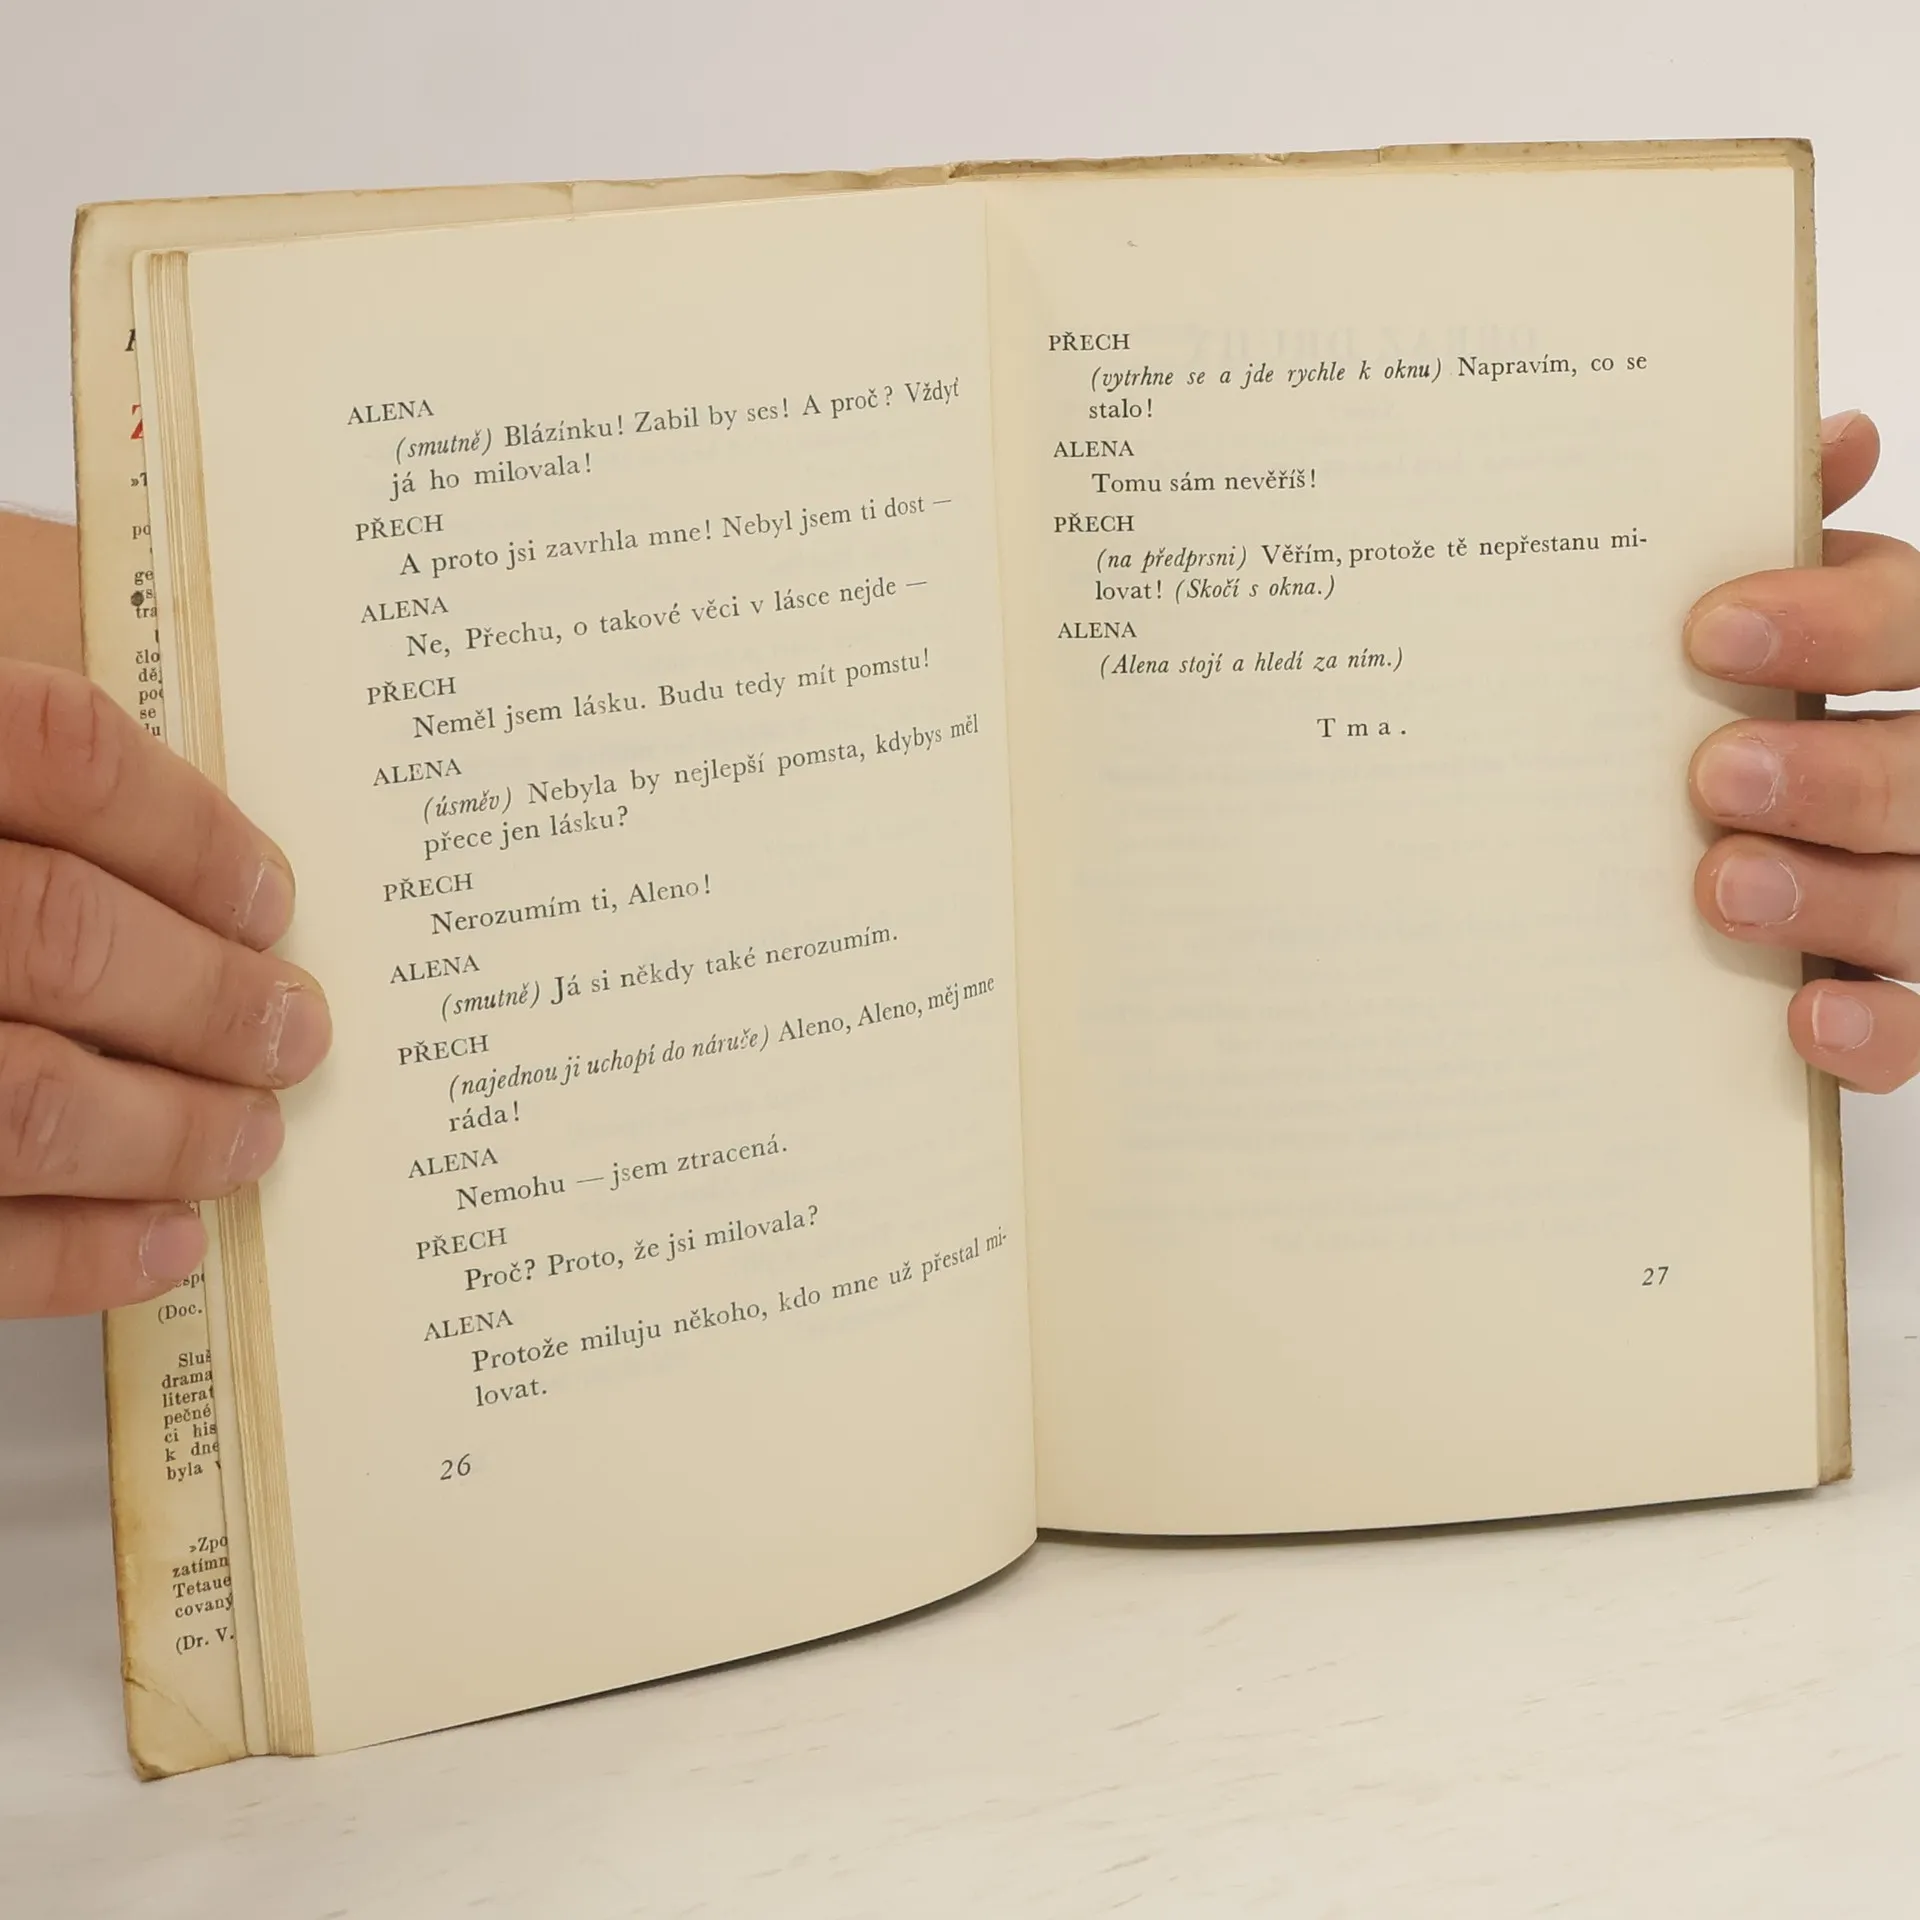 ALENA
(smutně) Blázínku! Zabil by ses! A proč? Vždyť
já ho milovala!
PŘECH
A proto jsi zavrhla mne! Nebyl jsem ti dost —
ALENA
Ne, Přechu, o takové věci v lásce nejde —
PŘECH
Neměl jsem lásku. Budu tedy mít pomstu!
ALENA
(úsměv) Nebyla by nejlepší pomsta, kdybys měl
přece jen lásku?
PŘECH
Nerozumím ti, Aleno!
ALENA
(smutně) Já si někdy také nerozumím.
PŘECH
(najednou ji uchopí do náruče) Aleno, Aleno, měj mne
ráda!
ALENA
Nemohu — jsem ztracená.
PŘECH
Proč? Proto, že jsi milovala?
ALENA
Protože miluju někoho, kdo mne už přestal mi-
lovat.
26
PŘECH
(vytrhne se a jde rychle k oknu) Napravím, co se
stalo!
ALENA
Tomu sám nevěříš!
PŘECH
(na předprsni) Věřím, protože tě nepřestanu mi-
lovat! (Skočí s okna.)
ALENA
(Alena stojí a hledí za ním.)
Tma.
27
po
ge
tra
člo
děj
poc
se
(Doc.
Sluš
drama
literat
pečné
ci his
k dne
byla
»Zpo
zatímn
Tetaue
covaný
(Dr. V.